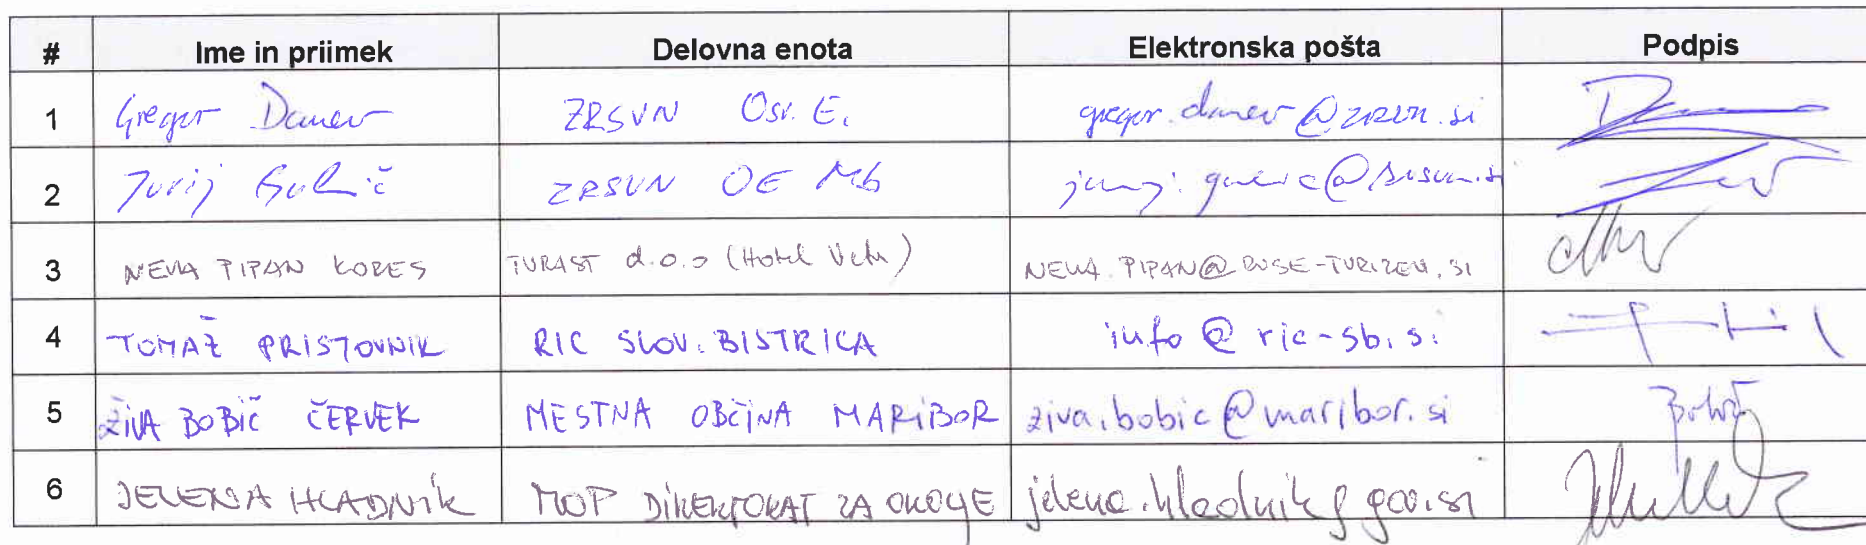 # Ime in priimek Delovna enota Elektronska pošta Podpis
1 Gregor Danev ZRSVN Osr. E. gregor.danev@zrsvn.si
2 Jurij Gulič ZRSVN OE Mb
3 NEVA PIPAN KORES TURAST d.o.o (Hotel Veter) NEVA.PIPAN@RUSE-TURIZEM.SI
4 TOMAŽ PRISTOVNIK RIC SLOV. BISTRICA info@ric-sb.si
5 ŽIVA BOBIČ ČERVEK MESTNA OBČINA MARIBOR ziva.bobic@maribor.si Bobič
6 JELENA HLADNIK MOP DIREKTORAT ZA OKOLJE jelena.hladnik@gov.si